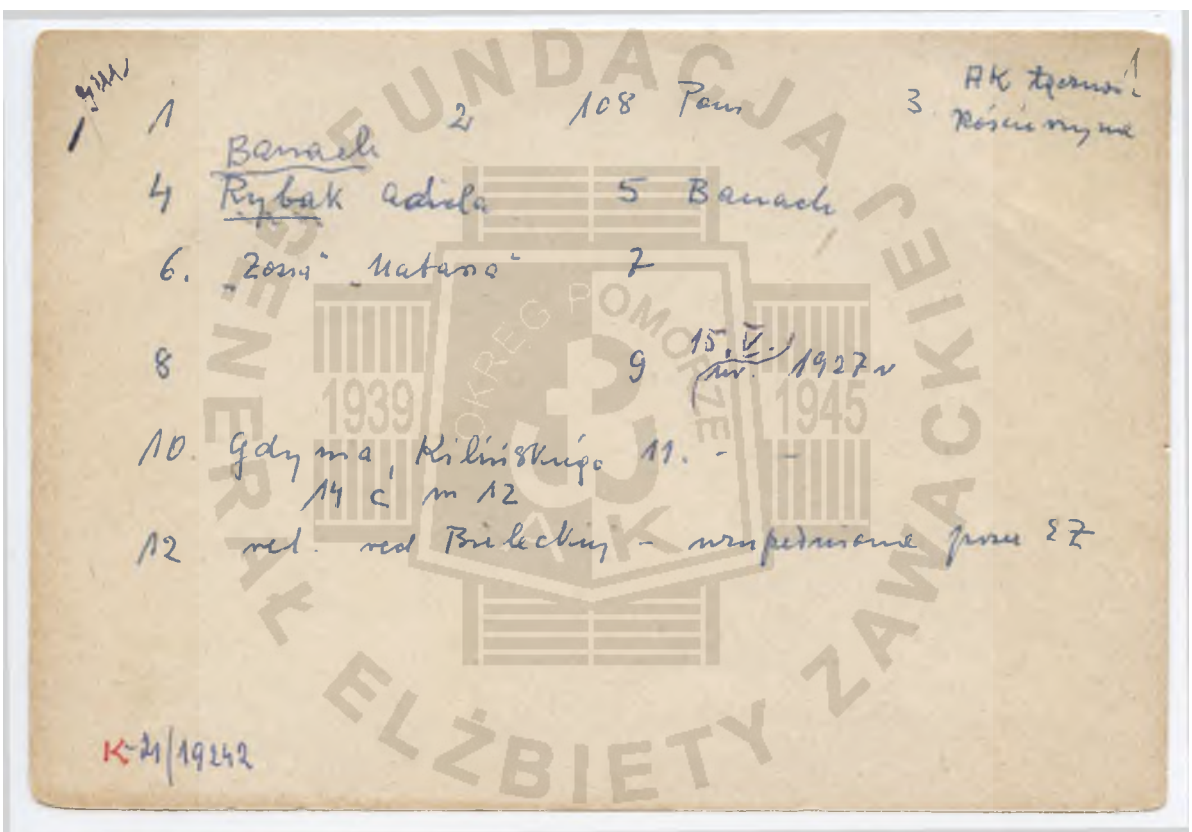 1 2 108 Pom 3. AK Łączność
Kościerzyna
Banach
4 Rybak Adela 5 Banach
6. "Zosia" "Natasza" 7
8 9 15.V. ur. 1927 r
10. Gdynia, Kilińskiego 11. - -
14 c m 12
12 rel. red Bieleckiej - uzupełniona przez EZ
K-21/19242
FUNDACJA GENERAŁ ELŻBIETY ZAWACKIEJ
OKRĘG POMORZE
1939 1945
AK